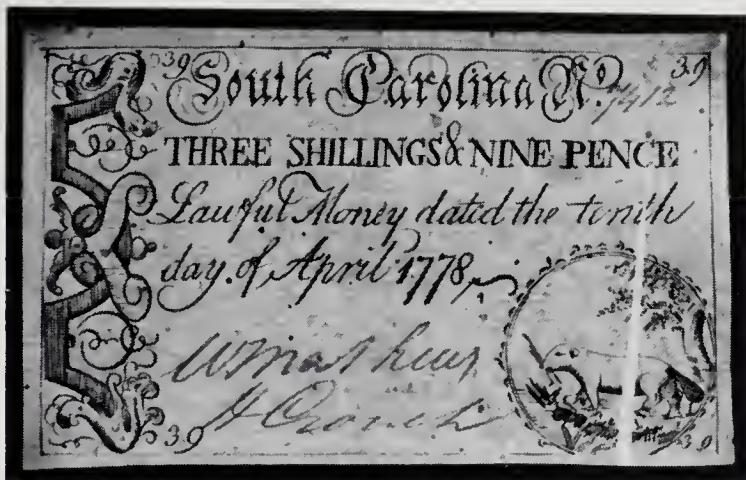 39 South Carolina No. 7412 39
THREE SHILLINGS & NINE PENCE
Lawful Money dated the tenth
day of April 1778
39 39